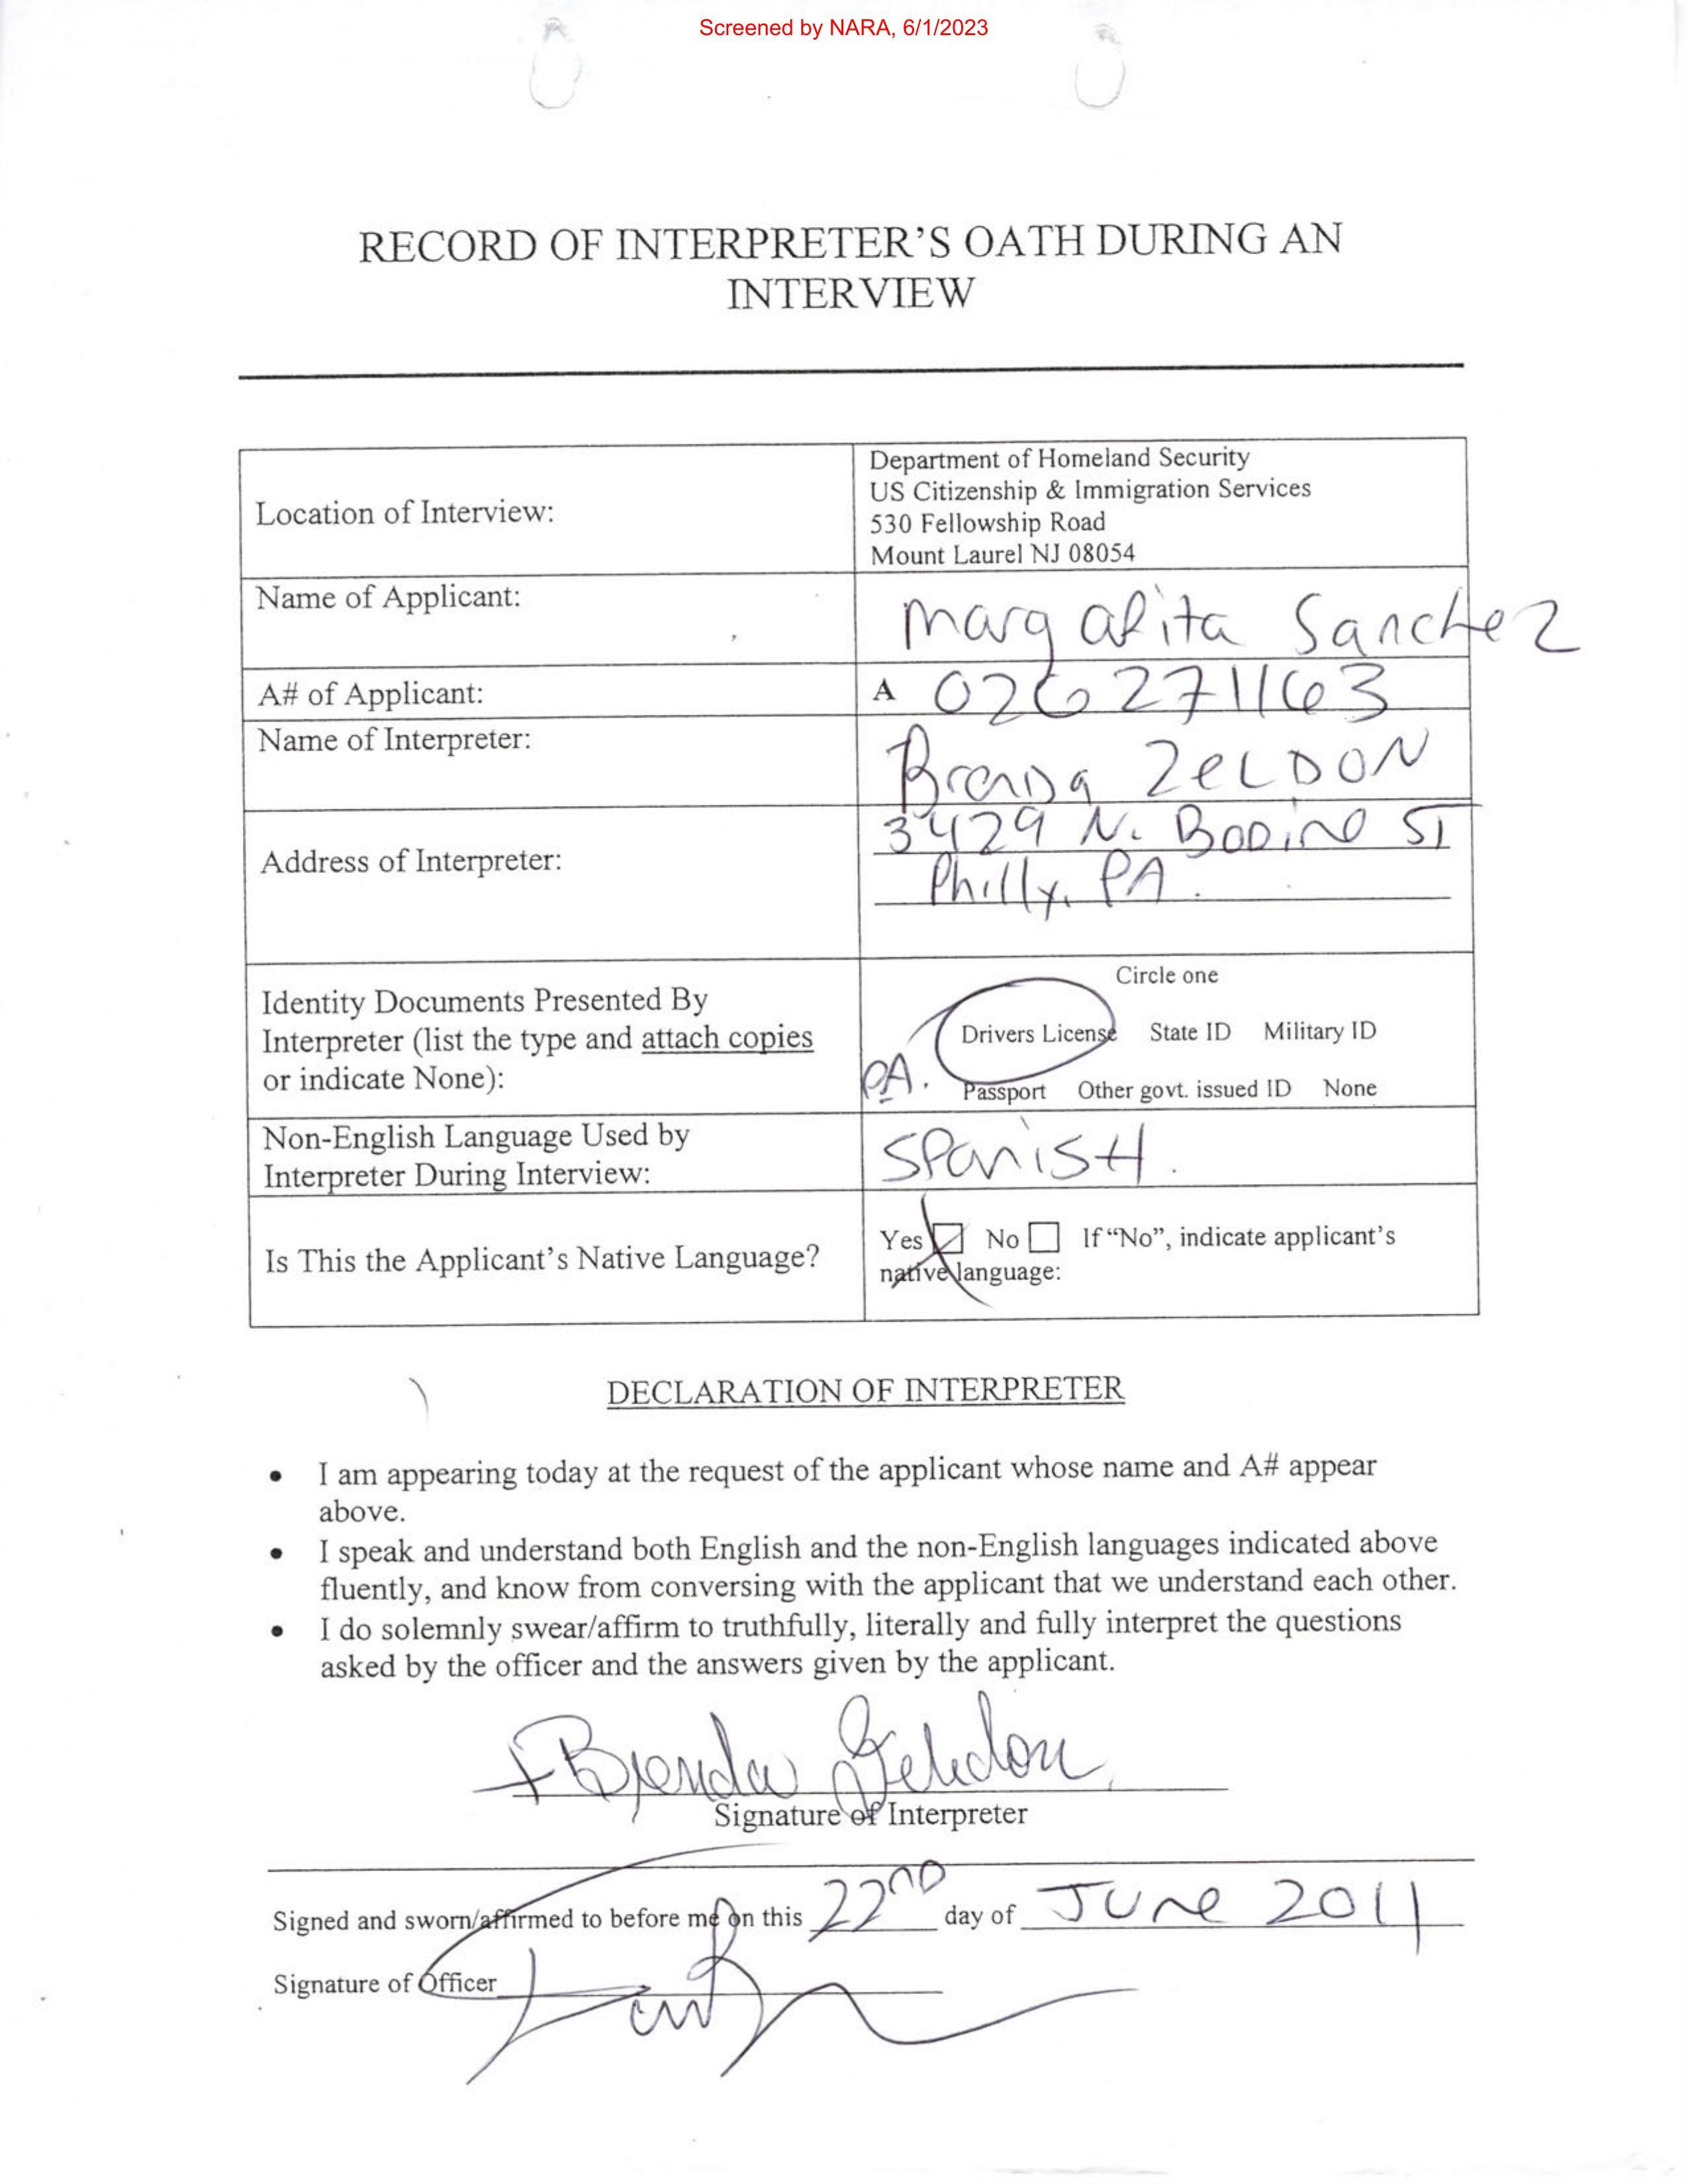 Screened by NARA, 6/1/2023
RECORD OF INTERPRETER'S OATH DURING AN
INTERVIEW
Location of Interview:
Department of Homeland Security
US Citizenship & Immigration Services
530 Fellowship Road
Mount Laurel NJ 08054
Name of Applicant:
Margarita Sanchez
A# of Applicant:
A 026271163
Name of Interpreter:
Brenda ZeLDON
Address of Interpreter:
3429 N. Bodine ST
Philly, PA.
Identity Documents Presented By
Interpreter (list the type and attach copies
or indicate None):
Circle one
Drivers License State ID Military ID
PA.
Passport Other govt. issued ID None
Non-English Language Used by
Interpreter During Interview:
SPanisH.
Is This the Applicant's Native Language?
Yes No If "No", indicate applicant's
native language:
DECLARATION OF INTERPRETER
• I am appearing today at the request of the applicant whose name and A# appear
above.
• I speak and understand both English and the non-English languages indicated above
fluently, and know from conversing with the applicant that we understand each other.
• I do solemnly swear/affirm to truthfully, literally and fully interpret the questions
asked by the officer and the answers given by the applicant.
Brenda Zeledon
Signature of Interpreter
Signed and sworn/affirmed to before me on this 22ND day of June 2011
Signature of Officer